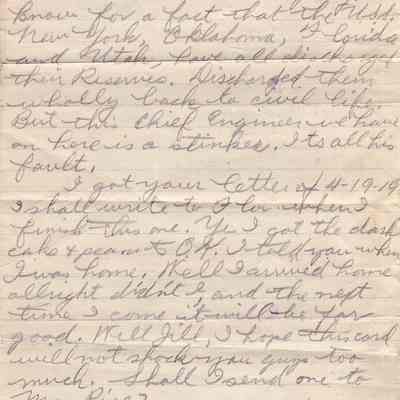 know for a fact that the U.S.S.
New York, Oklahoma, Florida
and Utah, have all discharged
their Reserves. Discharged them
wholly back to civil life.
But this Chief Engineer we have
on here is a stinker. Its all his
fault.
I got your letter of 4-19-19
I shall write to Flo when I
finish this one. Yes I got the dark
cake & peanuts O.K. I told you when
I was home. Well I arrived home
allright didn't I, and the next
time I come it will be for
good. Well Jill, I hope this card
will not shock you guys too
much. Shall I send one to